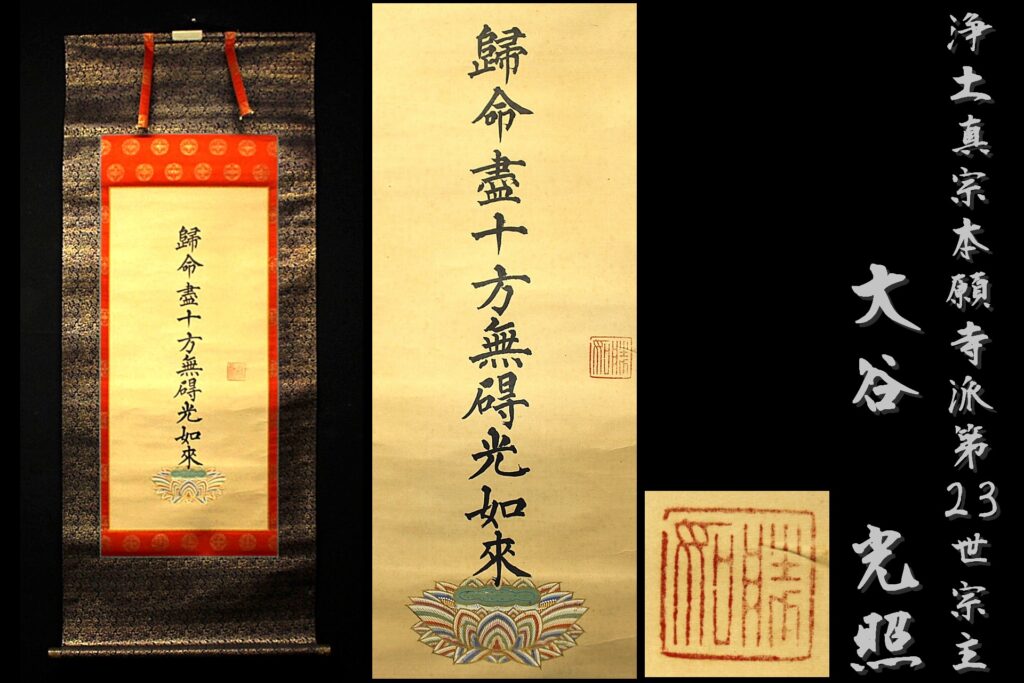 浄土真宗本願寺派第23世宗主
大谷 光照
歸命盡十方無碍光如來
勝如
勝如
歸命盡十方無碍光如來